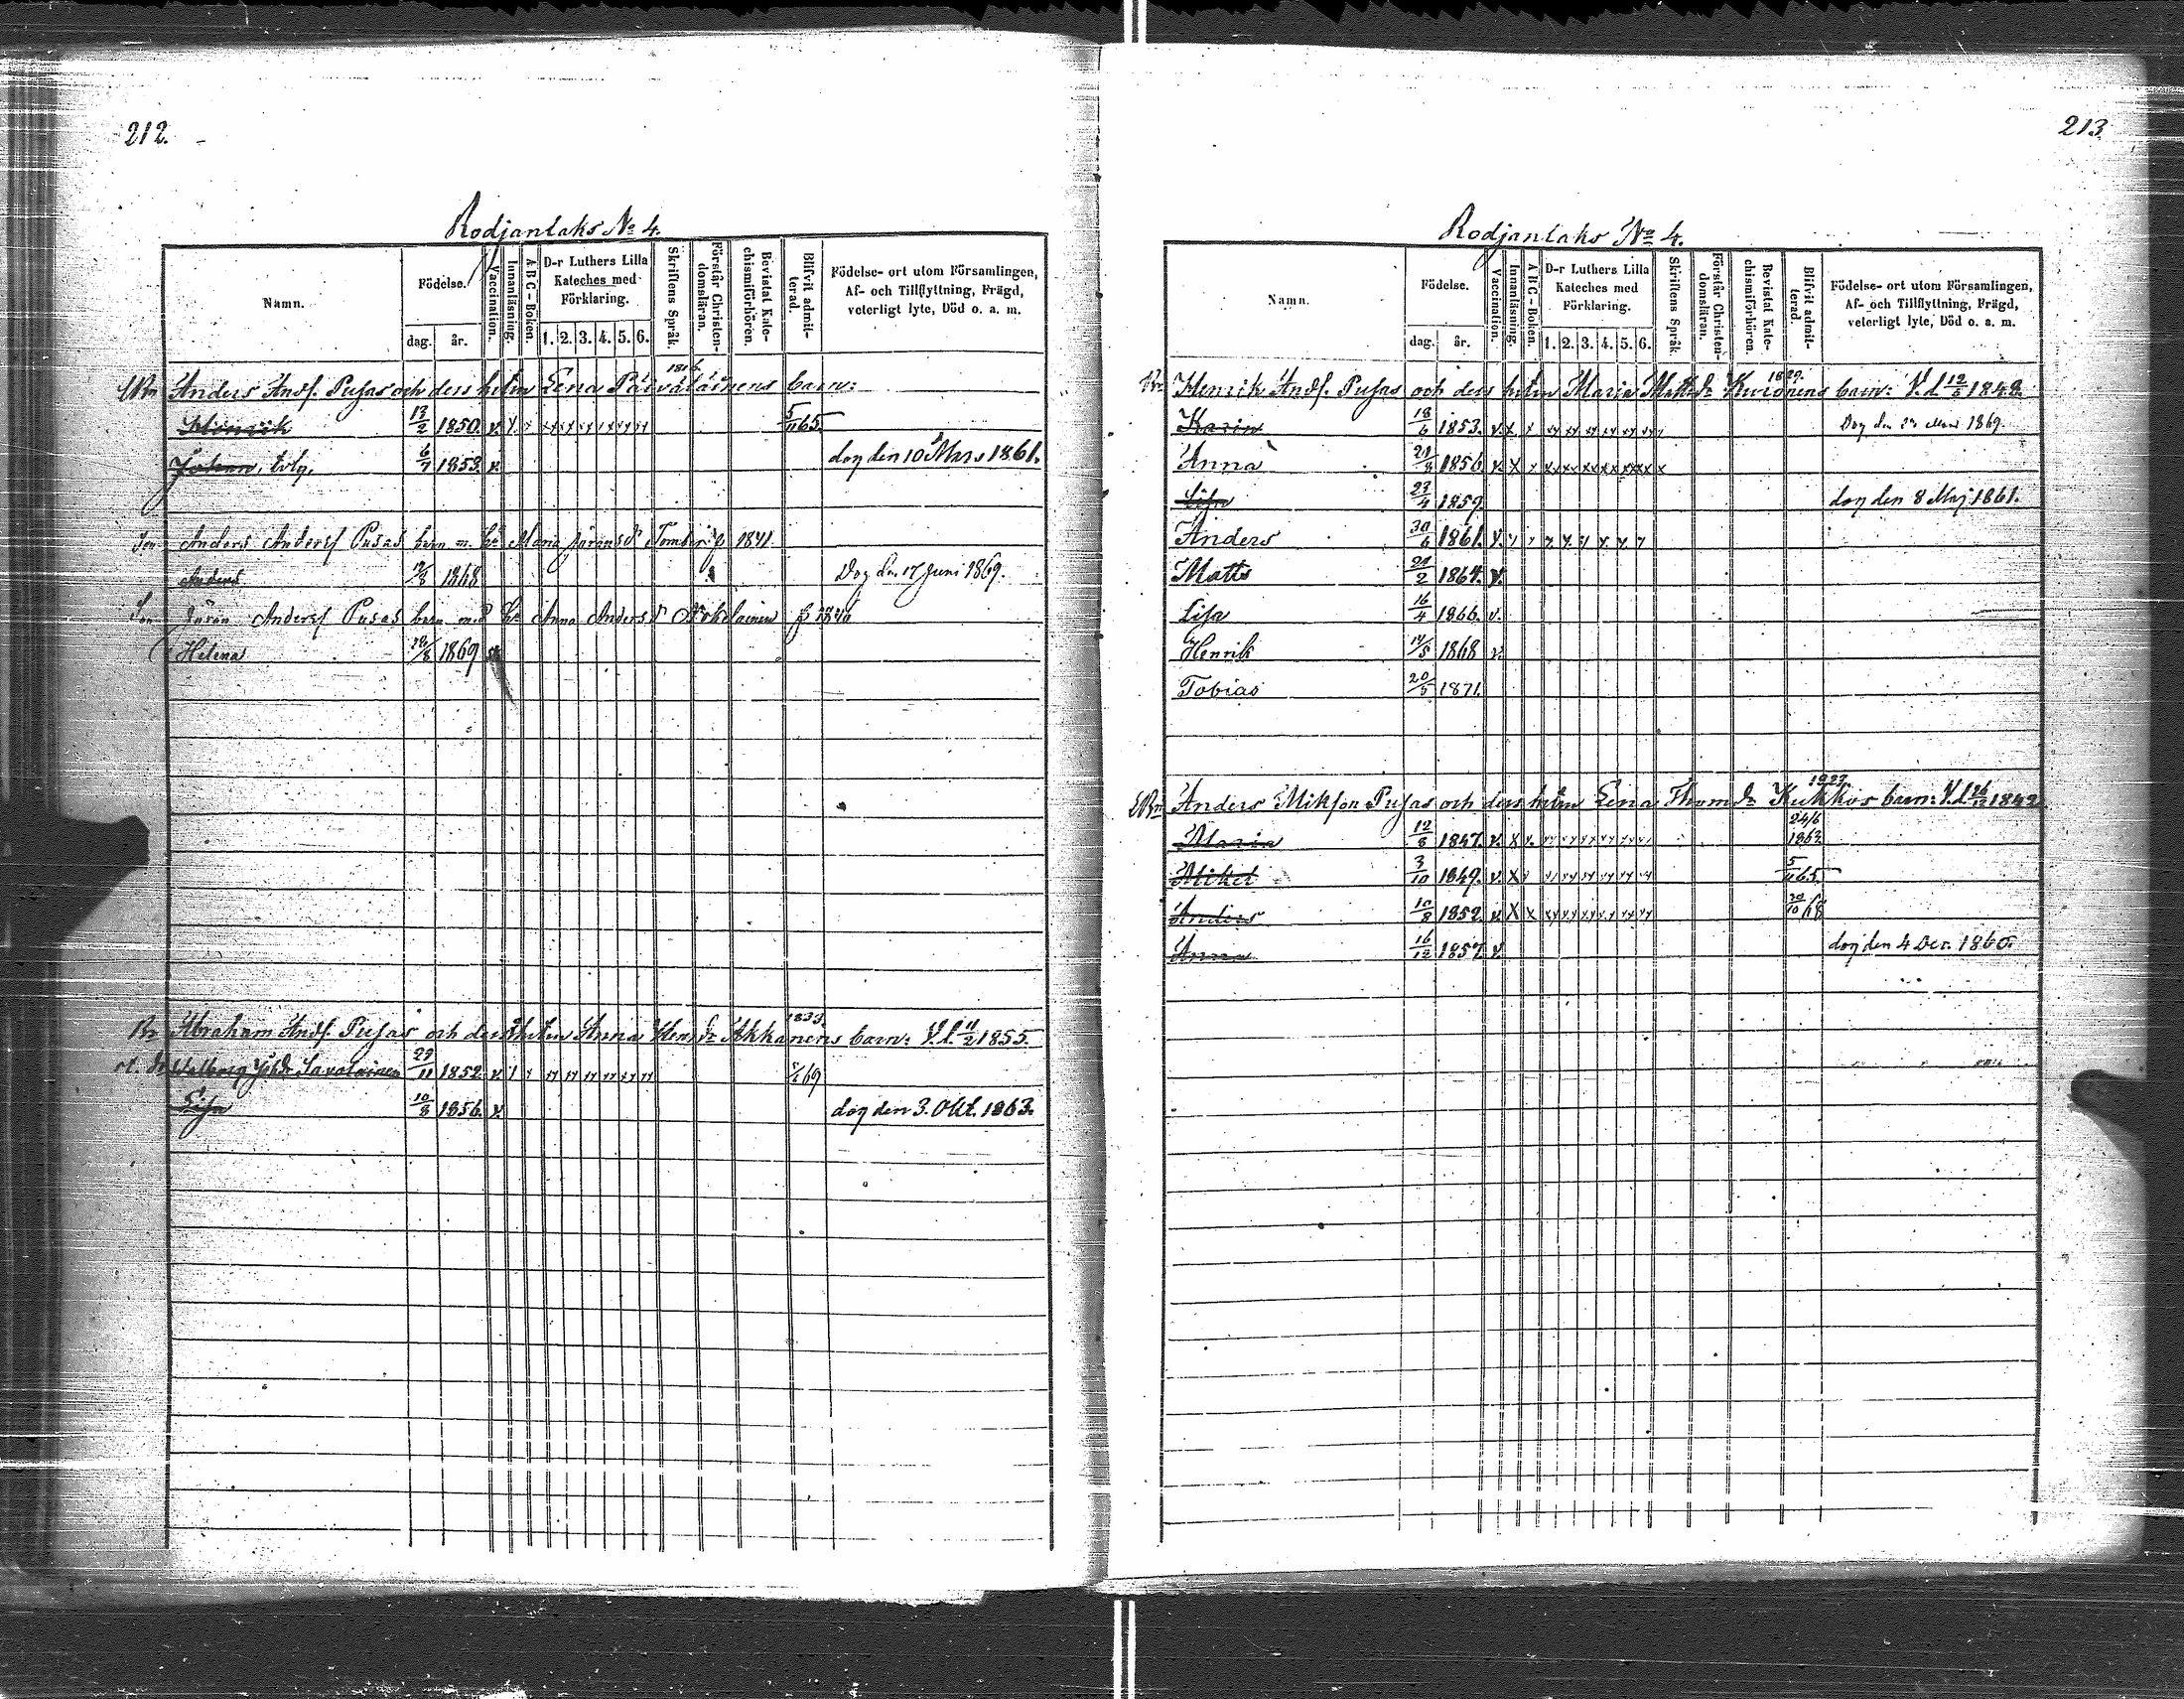 212.
Rodjanlaks No 4.
Namn.
Födelse.
dag.
år.
Vaccination.
Innanläsning.
A B C - Boken.
D-r Luthers Lilla Kateches med Förklaring.
1. 2. 3. 4. 5. 6.
Skriftens Språk.
Förstår Christendomsläran.
Bevistat Katechismiförhören.
Blifvit admitterad.
Födelse- ort utom Församlingen, Af- och Tillflyttning, Frägd, veterligt lyte, Död o. a. m.
1816.
Anders Andſ. Puſas och dess hustru Lena Päiväläinens barn:
Henrik 13/2 1850. v. 5/11 65.
Johan, tvlg. 6/7 1853. v. dog den 10 Mars 1861.
Son Anders Andersſ Pusas barn m. Maria Jöransdr 1841
Anders 1868 Dog den 17 Juni 1869.
Son Jöran Andersſ Pusas barn med Anna Andersdr
Helena 1869
1833.
Br Abraham Andſ. Puſas och dess hustru Anna Henr. dr Akkanens barn: V. d. 11/2 1855.
Walborg Johdr Savolainen 29/11 1852. v. 69
Lisa 10/8 1856. v. dog den 3. Okt. 1863.
213
Rodjanlaks No 4.
Namn.
Födelse.
dag.
år.
Vaccination.
Innanläsning.
A B C - Boken.
D-r Luthers Lilla Kateches med Förklaring.
1. 2. 3. 4. 5. 6.
Skriftens Språk
Förstår Christendomsläran.
Bevistat Katechismiförhören.
Blifvit admitterad.
Födelse- ort utom Församlingen, Af- och Tillflyttning, Frägd, veterligt lyte, Död o. a. m.
1829.
Br Henrik Andſ. Puſas och dess hustru Maria Matts dr Kuronens barn: V. d. 12/5 1848.
Karin 18/6 1853. v. Dog den 1869.
Anna 21/8 1856 v.
Lisa 23/4 1859 dog den 8 Maj 1861.
Anders 30/6 1861. v.
Matts 21/2 1864. v.
Lisa 16/4 1866. v.
Henrik 14/5 1868 v.
Tobias 20/5 1871.
Anders Mikſon Puſas och dess hustru Lena Thom. dr Kukkos barn: V. d. 26/12 1842
Maria 12/8 1847. v. 24/6 1863.
Mikel 3/10 1849. v. 5/11 65.
Anders 10/8 1852. v. 20/10 68
Anna 16/12 1857. v. dog den 4 Dec. 1860.